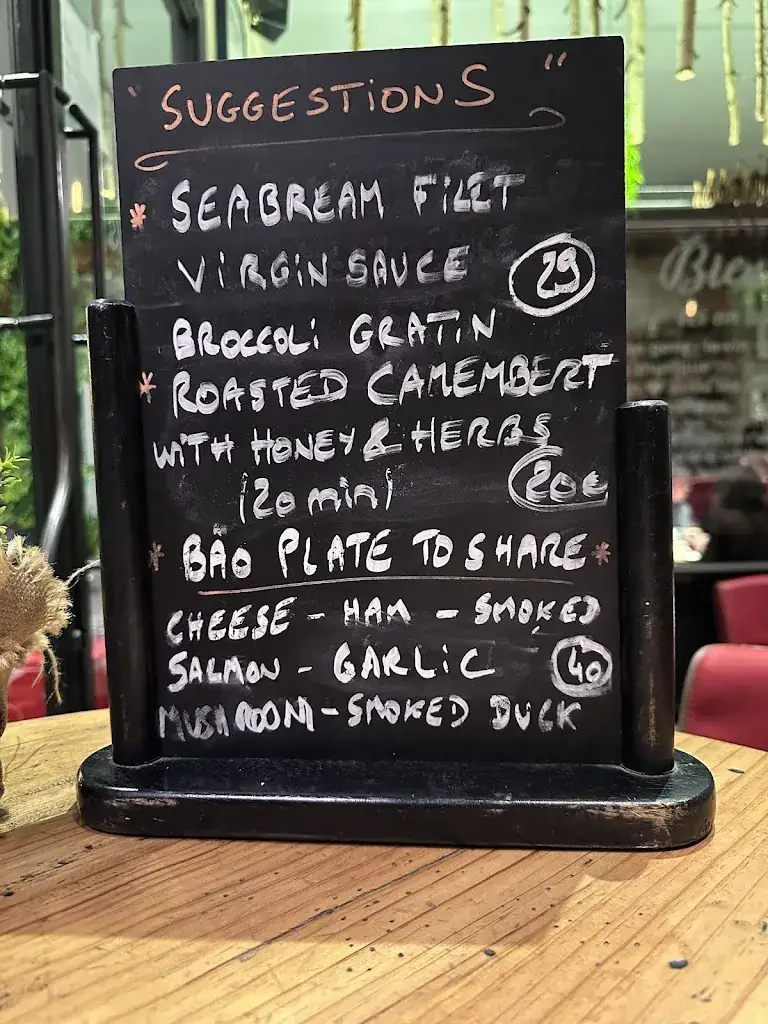 "SUGGESTIONS"
* SEABREAM FILET
VIRGIN SAUCE 29
BROCCOLI GRATIN
* ROASTED CAMEMBERT
WITH HONEY & HERBS
(20 min) 20€
* BAO PLATE TO SHARE *
CHEESE - HAM - SMOKED
SALMON - GARLIC 40
MUSHROOM - SMOKED DUCK